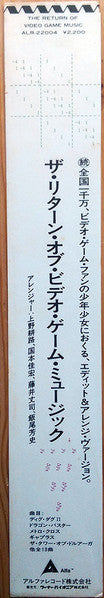 THE RETURN OF
VIDEO GAME MUSIC
ALR-22004 ¥2,200
続 全国一千万、ビデオ・ゲーム・ファンの少年少女におくる、エディット&アレンジ・ヴァージョン。
ザ・リターン・オブ・ビデオ・ゲーム・ミュージック
アレンジャー、上野耕路、国本佳宏、藤井丈司、飯尾芳史
曲目:
ディグ・ダグⅡ
ドラゴン・バスター
メトロ・クロス
ギャプラス
ザ・タワー・オブ・ドルアーガ
他全13曲
Alfa
アルファレコード株式会社
販売元/ワーナー・パイオニア株式会社